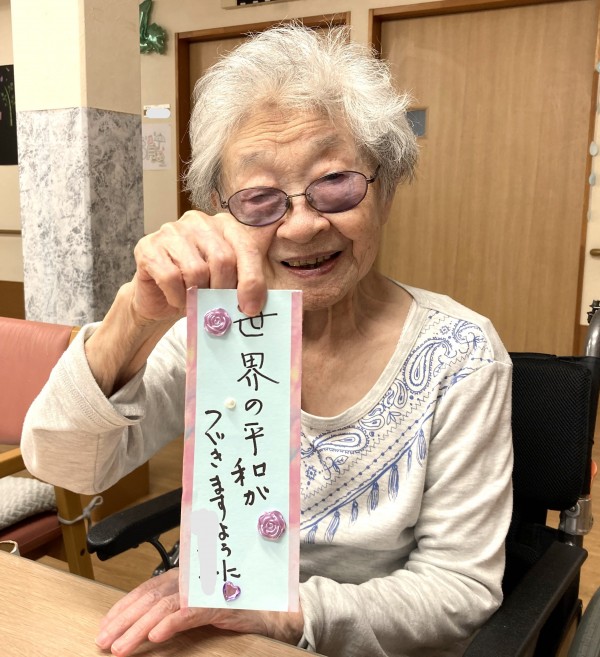 世界の平和が
つづきますように